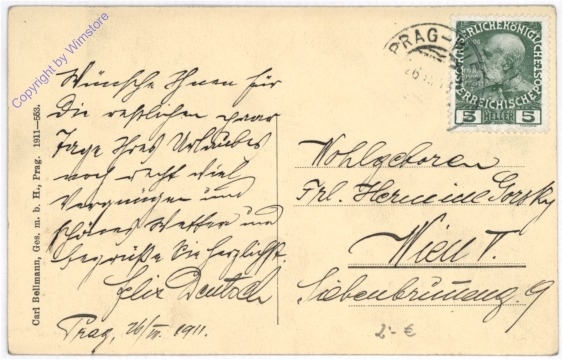 Copyright by Wimstore
Wünsche Ihnen für
die restlichen paar
Tage Ihres Urlaubes
noch recht viel
Vergnügen und
schönes Wetter und
begrüße Sie herzlichst.
Felix Deutsch
Prag, 26/VI. 1911.
Carl Bellmann, Ges. m. b. H., Prag. 1911—553.
PRAG-
26
KAISERLICHE KÖNIGLICHE
ÖSTERREICHISCHE POST
5 HELLER 5
Wohlgeboren
Frl. Hermine
Wien V.
Siebenbrunneng. 9
2.- €